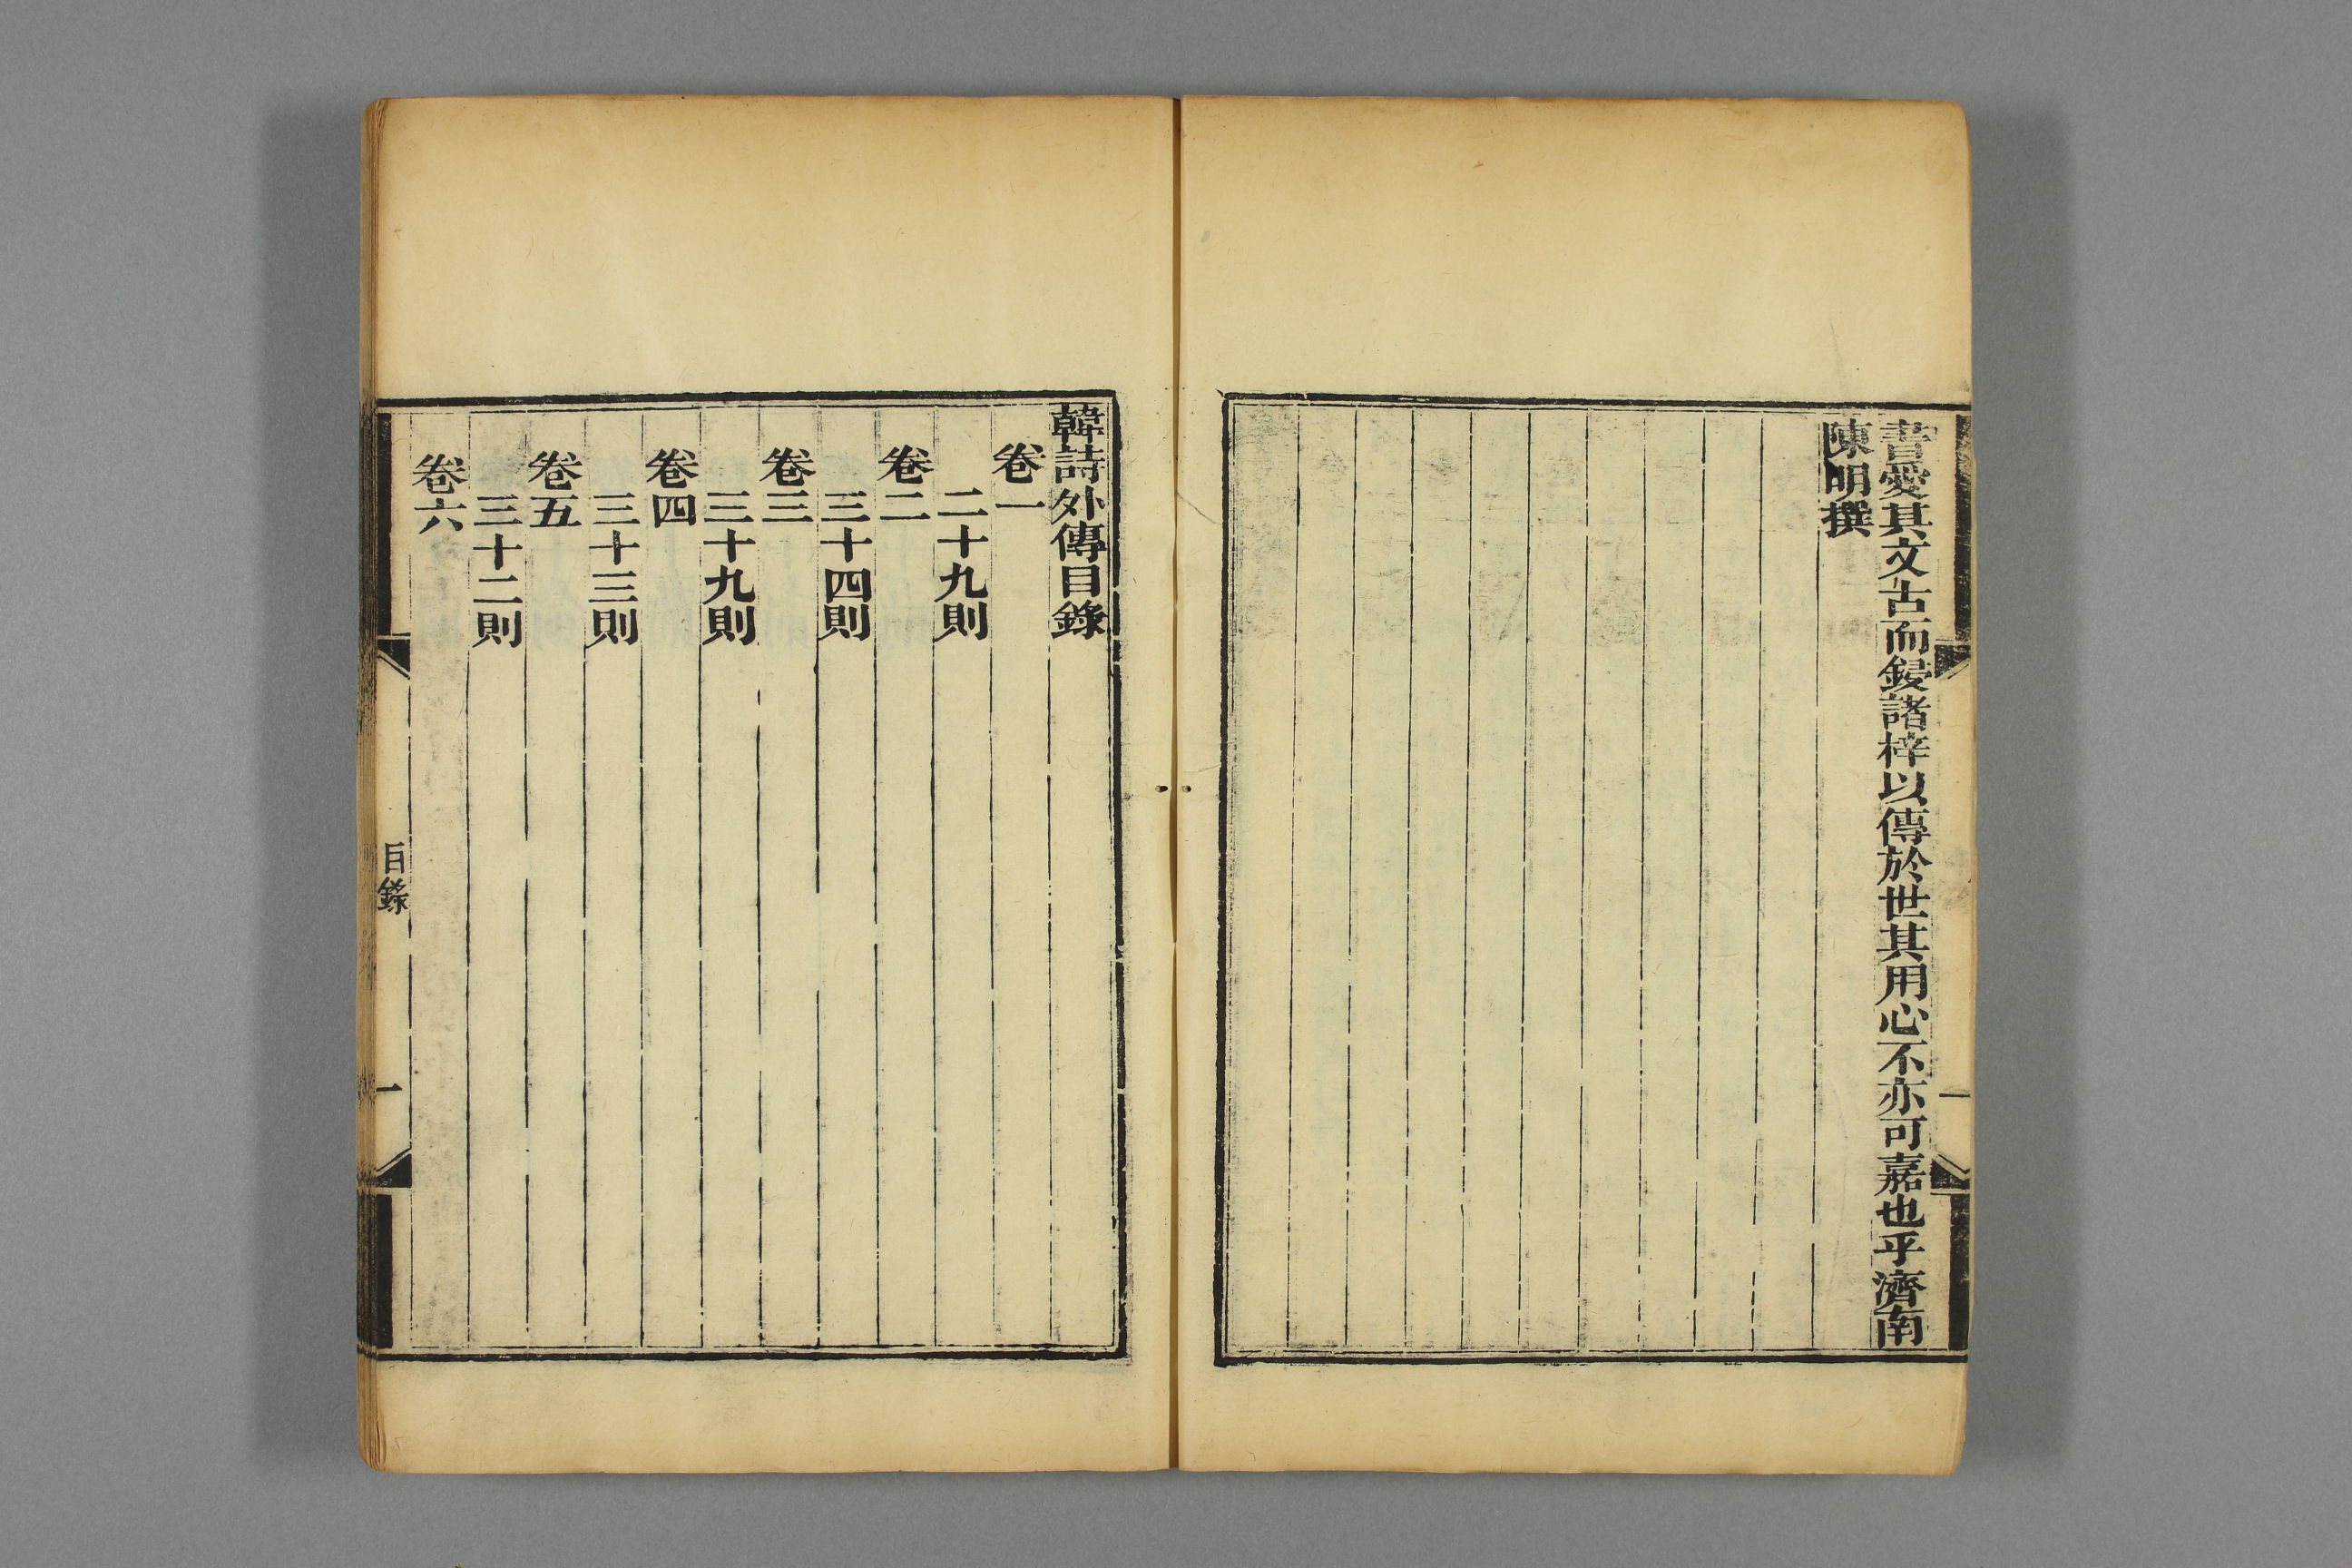 書愛其文古而鋟諸梓以傳於世其用心不亦可嘉也乎濟南
陳明撰
一
韓詩外傳目錄
卷一
二十九則
卷二
三十四則
卷三
三十九則
卷四
三十三則
卷五
三十二則
卷六
目錄
一